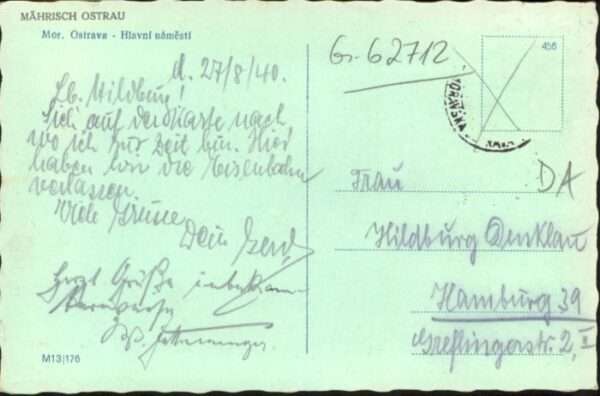 MÄHRISCH OSTRAU
Mor. Ostrava - Hlavní náměstí
d. 27/8/40.
Lb. Hildburg!
Sieh auf der Karte nach
wo ich zur Zeit bin. Hier
haben wir die Eisenbahn
verlassen.
Viele Grüsse
Dein Gerd
Herzl. Grüße
M13|176
Gr. 62712
456
Frau
DA
Hildburg Denklau
Hamburg 39
Greflingerstr. 2, II